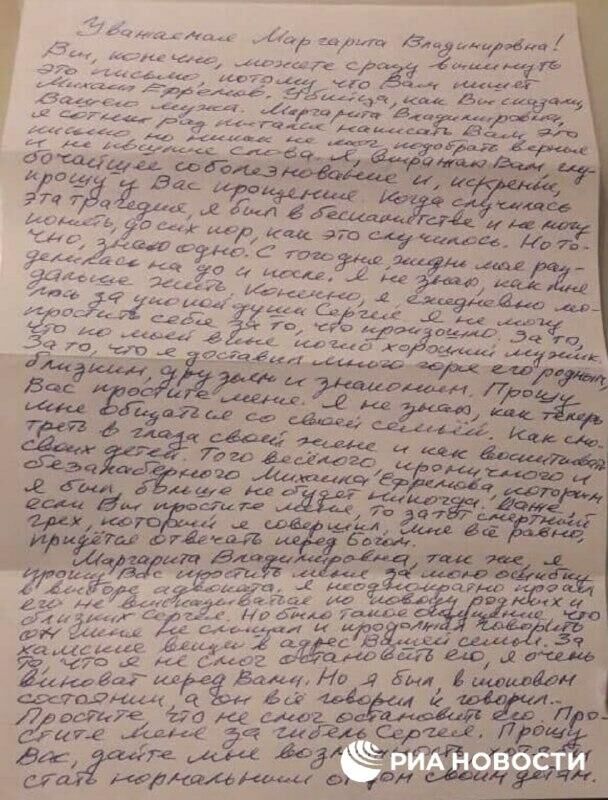 Уважаемая Маргарита Владимировна!
Вы, конечно, можете сразу выкинуть
это письмо, потому что Вам пишет
Михаил Ефремов. Убийца, как Вы сказали,
Вашего мужа. Маргарита Владимировна,
я сотни раз пытался написать Вам это
письмо, но никак не мог подобрать верные
и не пошлые слова. Я, выражаю Вам, глу-
бочайшее соболезнование и, искренне,
прошу у Вас прощение. Когда случилась
эта трагедия, я был в беспамятстве и не могу
понять, до сих пор, как это случилось. Но то-
чно, знаю одно. С того дня, жизнь моя раз-
делилась на до и после. Я не знаю, как мне
дальше жить. Конечно, я, ежедневно мо-
люсь за упокой души Сергея. Я не могу
простить себе за то, что произошло. За то,
что по моей вине погиб хороший мужик.
За то, что я доставил много горя его родным,
близким, друзьям и знакомым. Прошу
Вас простите меня. Я не знаю, как теперь
мне общаться со своей семьёй. Как смо-
треть в глаза своей жене и как воспитывать
своих детей. Того весёлого, ироничного и
безалаберного Михаила Ефремова, которым
я был, больше не будет никогда. Даже,
если Вы простите меня, то за тот смертный
грех, который я совершил, мне всё равно,
придётся отвечать перед Богом.
Маргарита Владимировна, так же, я
прошу Вас простить меня за мою ошибку
в выборе адвоката. Я неоднократно просил
его не высказываться по поводу родных и
близких Сергея. Но было такое ощущение, что
он меня не слышал и продолжал говорить
хамские вещи в адрес Вашей семьи. За
то, что я не смог остановить его, я очень
виноват перед Вами. Но я был, в шоковом
состоянии, а он всё говорил и говорил...
Простите, что не смог остановить его. Про-
стите меня за гибель Сергея. Прошу
Вас, дайте мне
стать нормальным отцом своим детям.
РИА НОВОСТИ